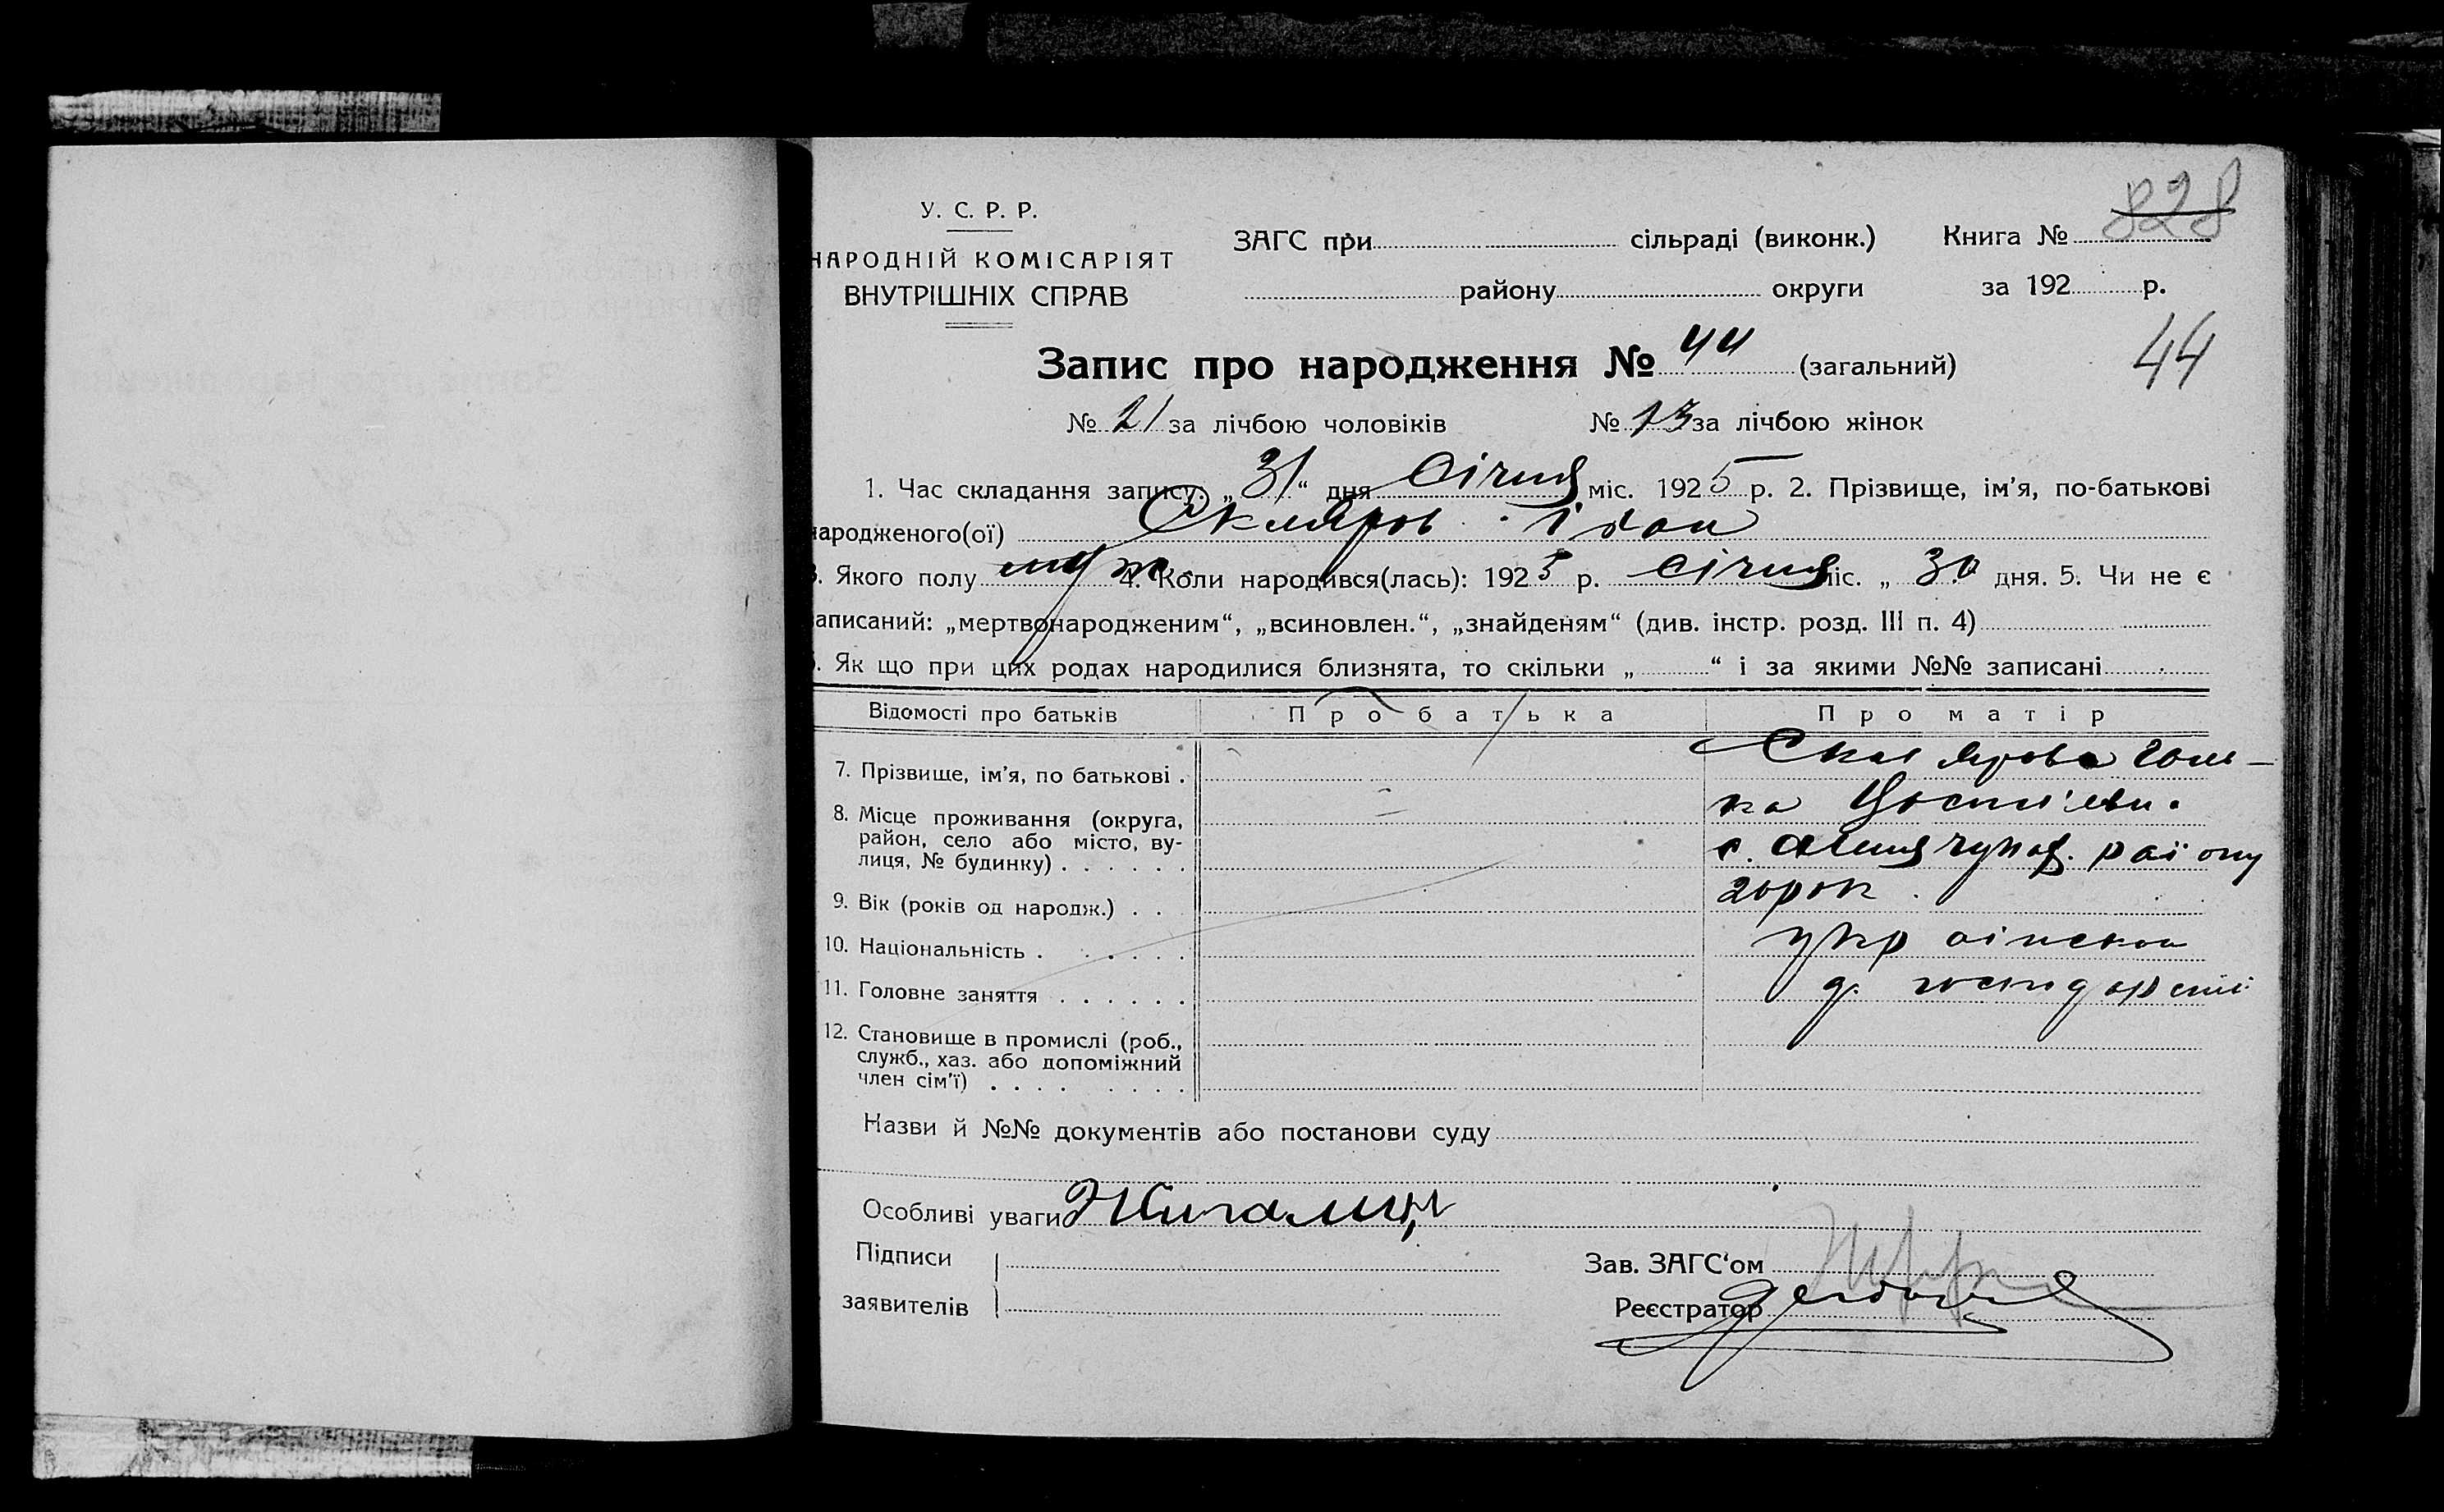 828
У. С. Р. Р.
НАРОДНІЙ КОМІСАРІЯТ
ВНУТРІШНІХ СПРАВ
ЗАГС при сільраді (виконк.) Книга №
району округи за 192 р.
44
Запис про народження № 44 (загальний)
№ 21 за лічбою чоловіків № 13 за лічбою жінок
1. Час складання запису: „31“ дня Січня міс. 1925 р. 2. Прізвище, ім’я, по-батькові
народженого(ої) Скляров Іван
3. Якого полу муж. 4. Коли народився(лась): 1925 р. Січня міс. „ 30 дня. 5. Чи не є
записаний: „мертвонародженим“, „всиновлен.“, „знайденям“ (див. інстр. розд. III п. 4)
6. Як що при цих родах народилися близнята, то скільки „ “ і за якими №№ записані
Відомості про батьків Про батька Про матір
7. Прізвище, ім’я, по батькові . Склярова
8. Місце проживання (округа,
район, село або місто, ву-
лиця, № будинку) . . . . . . с. району
9. Вік (років од народж.) . . 20 рок
10. Національність . . . . . .
11. Головне заняття . . . . . . д.
12. Становище в промислі (роб.,
служб., хаз. або допоміжний
член сім’ї) . . . . . . . .
Назви й №№ документів або постанови суду
Особливі уваги
Підписи
заявителів
Зав. ЗАГС‘ом
Реєстратор